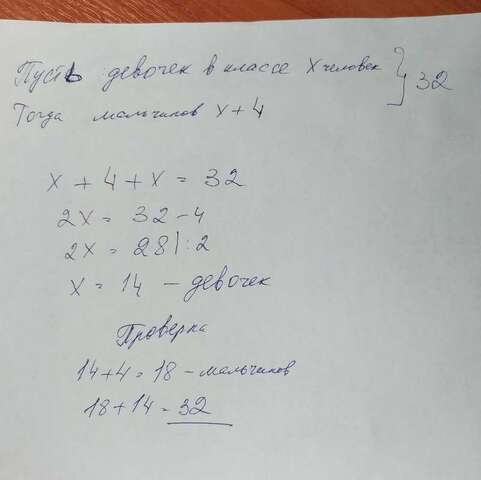 Пусть девочек в классе x человек } 32
Тогда мальчиков x + 4
x + 4 + x = 32
2x = 32 - 4
2x = 28 |: 2
x = 14 - девочек
Проверка
14 + 4 = 18 - мальчиков
18 + 14 = 32